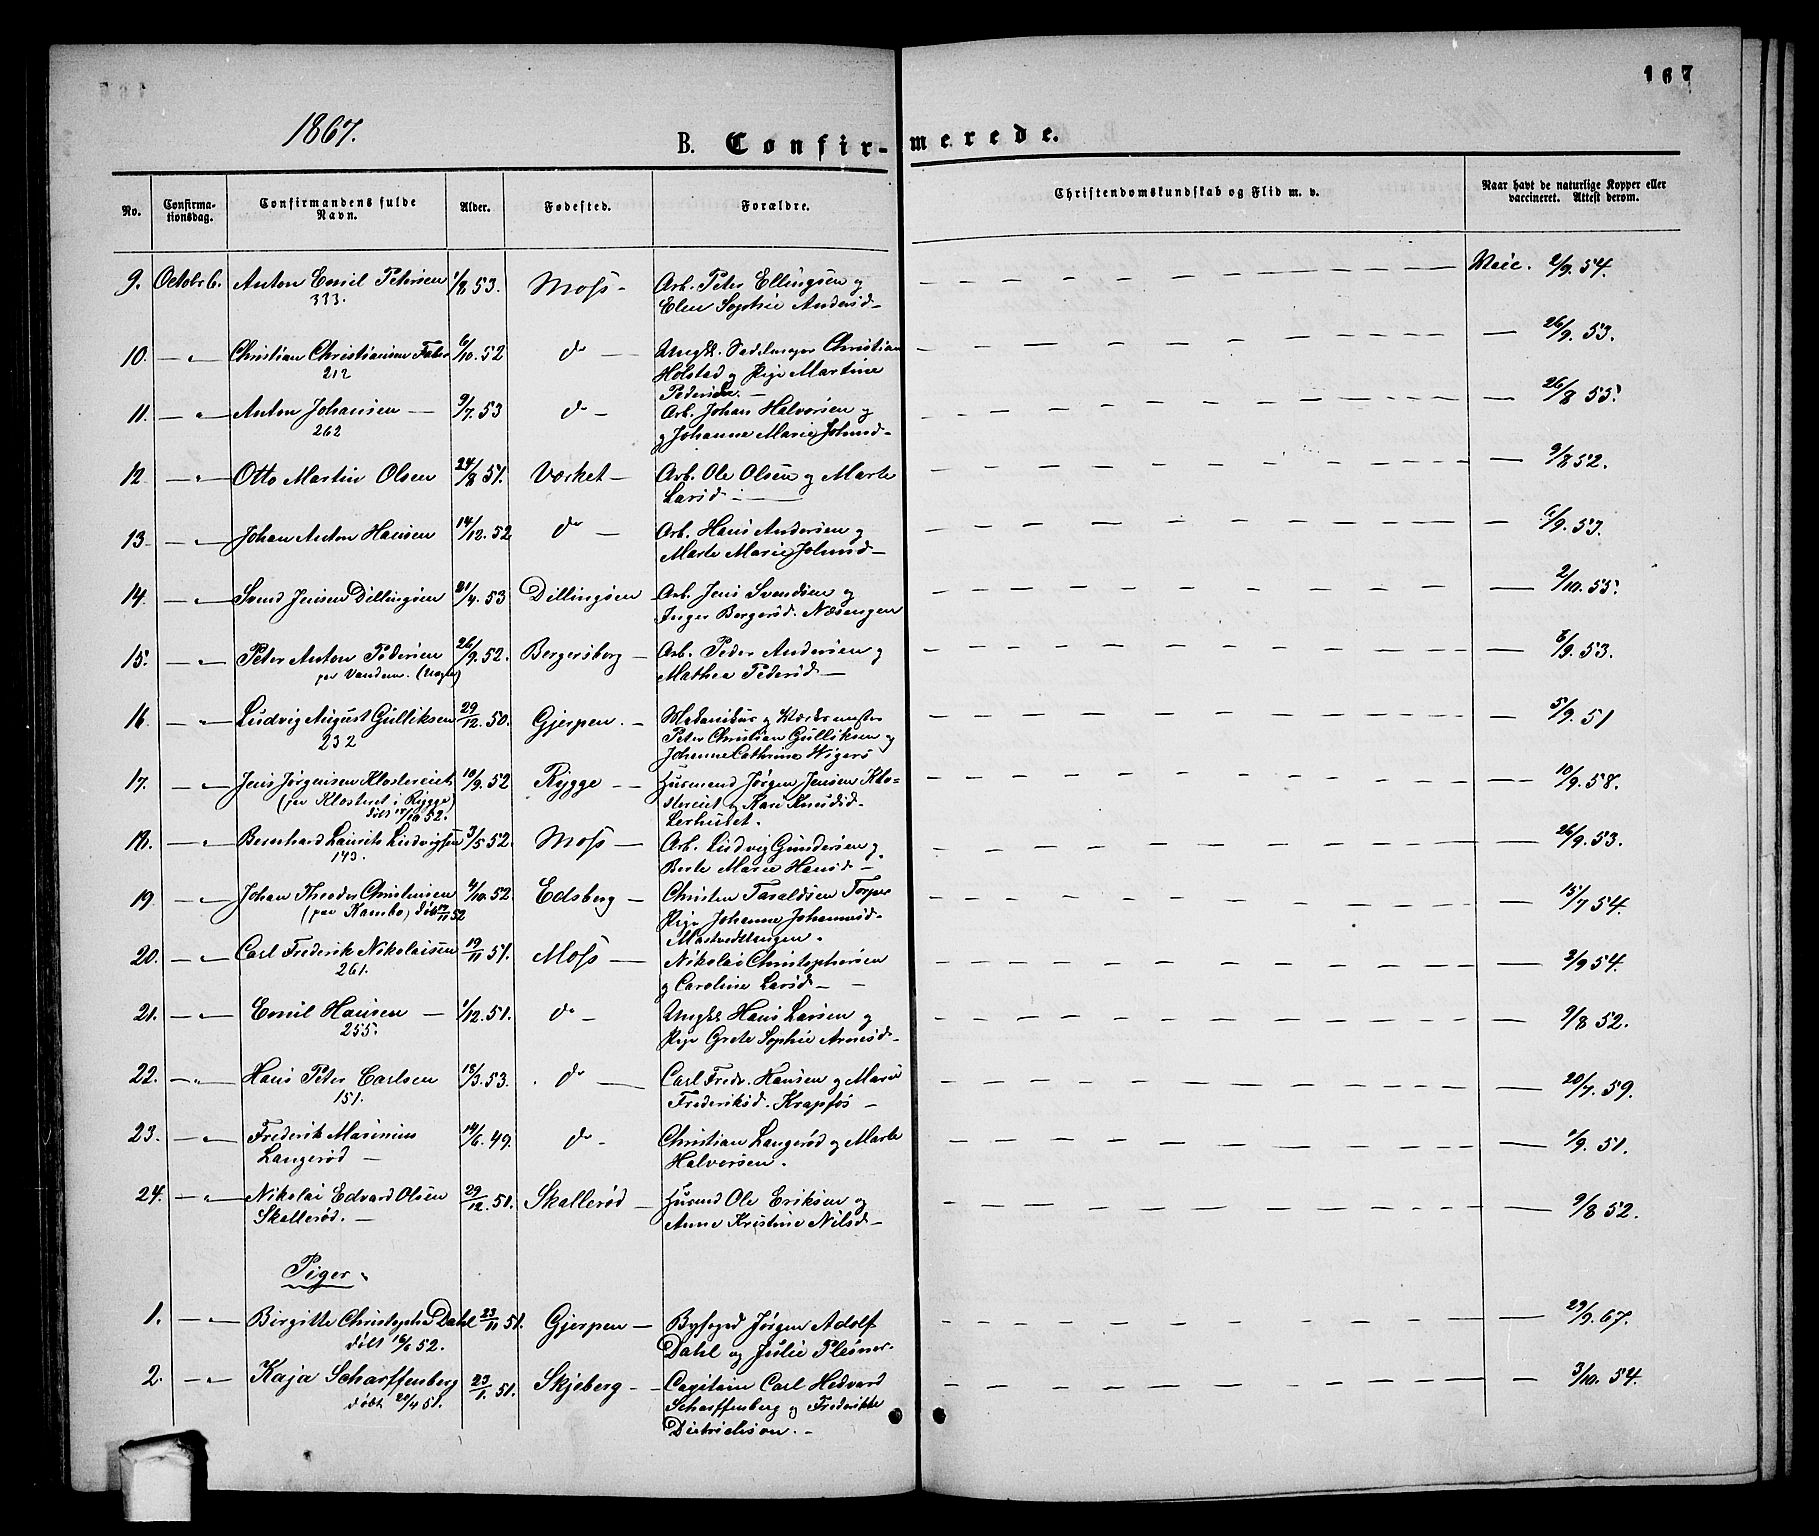 167
1867.
B. Confirmerede.
No.
Confirmationsdag.
Confirmandens fulde Navn.
Alder.
Fødested.
Forældre.
Christendomskundskab og Flid m. v.
Naar havt de naturlige Kopper eller vaccineret. Attest derom.
9. Octobr 6. Anton Emil Petersen 1/8 53. Moss - Arb. Peter Ellingsen og Veie. 2/9. 54.
333. Elen Sophie Andersd -
10. - " - Christian Christiansen Faber 6/10. 52 do - Ungk. Sadelmager Christian - 26/9. 53.
212 Holstad og Pige Martine
Pedersen. -
11. - " - Anton Johansen - 9/7. 53 do - Arb. Johan Halvorsen og - 26/8 55.
262 og Johanne Marie Johnsd -
12. - " - Otto Martin Olsen 24/8 51. Værket - Arb. Ole Olsen og Marte - 9/8 52.
Larsd. -
13. - " - Johan Anton Hansen 14/12. 52 do - Arb. Hans Andersen og - 6/9. 53.
Marte Marie Johnsd -
14. - " - Svend Jensen Dillingøen 21/4. 53 Dillingøen - Arb. Jens Svendsen og - 2/10. 55.
Inger Bergersd. Næsengen
15. - " - Peter Anton Pedersen 26/9. 52. Bergersborg - Arb. Peder Andersen og - 6/9. 53.
par Vandem. Mathea Pedersd -
16. - " - Ludvig August Gulliksen 29/12. 50. Gjerpen. - og Værksmester - 5/9. 51
232 Peter Christian Gulliksen og
Johanne Cathrine Wigers
17. - " - Jens Jørgensen Klostereiet 10/9. 52 Rygge - Husmand Jørgen Jensen Klo- - 10/9. 58.
(par Klosteret i Rygge) stereiet og Kari Knudsd.
døbt 17/10 52. Lerhuset.
18. - " - Bernhard Laurits Ludvigsen 3/5 52. Moss - Arb. Ludvig Gundersen og - 26/9. 53.
143. Berte Marie Hansd -
19 - " - Johan Theodor Christensen 4/10. 52 Edsberg - Christen Taraldsen Torper - 15/7 54.
(par Kambo) døbt 14/11 52 Pige Johanne Johannesd -
Mostvedttangen.
20. - " - Carl Frederik Nikolaisen 19/11 51. Moss - Nikolai Christophersen - 2/9 54.
261. og Caroline Larsd -
21. - " - Emil Hansen - 1/12. 51. do - Ungk. Hans Larsen og - 9/8 52.
255. Pige Grete Sophie Arnesd -
22. - " - Hans Peter Carlsen 18/3. 53. do - Carl Fredr. Hansen og Marie - 20/7. 59.
151. Frederiksd. Krapfos -
23. - " - Frederik Marinius 14/6. 49. do - Christian Langerød og Marte - 1/9. 51.
Langerød - Halvorsen.
24. - " - Nikolai Edvard Olsen 29/12. 51. Skallerød - Husmd Ole Eriksen og - 9/8 52.
Skallerød. - Anne Kristine Nilsd -
Piger.
1. - " - Birgitte Christophe Dahl 23/11 51. Gjerpen - Byfoged Jørgen Adolf - 29/9. 67.
døbt 16/6 52. Dahl og Julie Plesner.
2. - " - Kaja Scharffenberg 23/1. 51. Skjeberg - Capitain Carl Hedvard - 3/10. 54.
døbt 22/4 51. Scharffenberg og Frederikke
Dietrichson. -